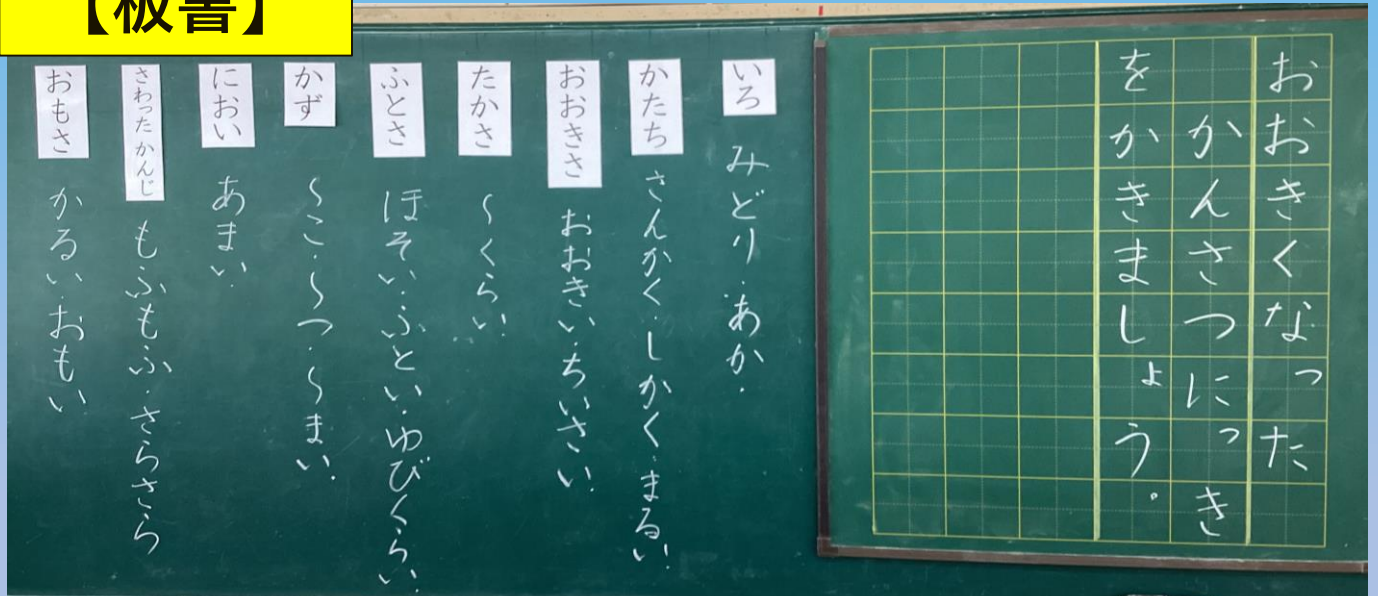 【板書】
おおきくなった
かんさつにっき
をかきましょう。
いろ みどり・あか・
かたち さんかく・しかく・まるい・
おおきさ おおきい・ちいさい・
たかさ ～くらい・
ふとさ ほそい・ふとい・ゆびくらい・
かず ～こ・～つ・～まい・
におい あまい・
さわった かんじ もふもふ・さらさら
おもさ かるい・おもい